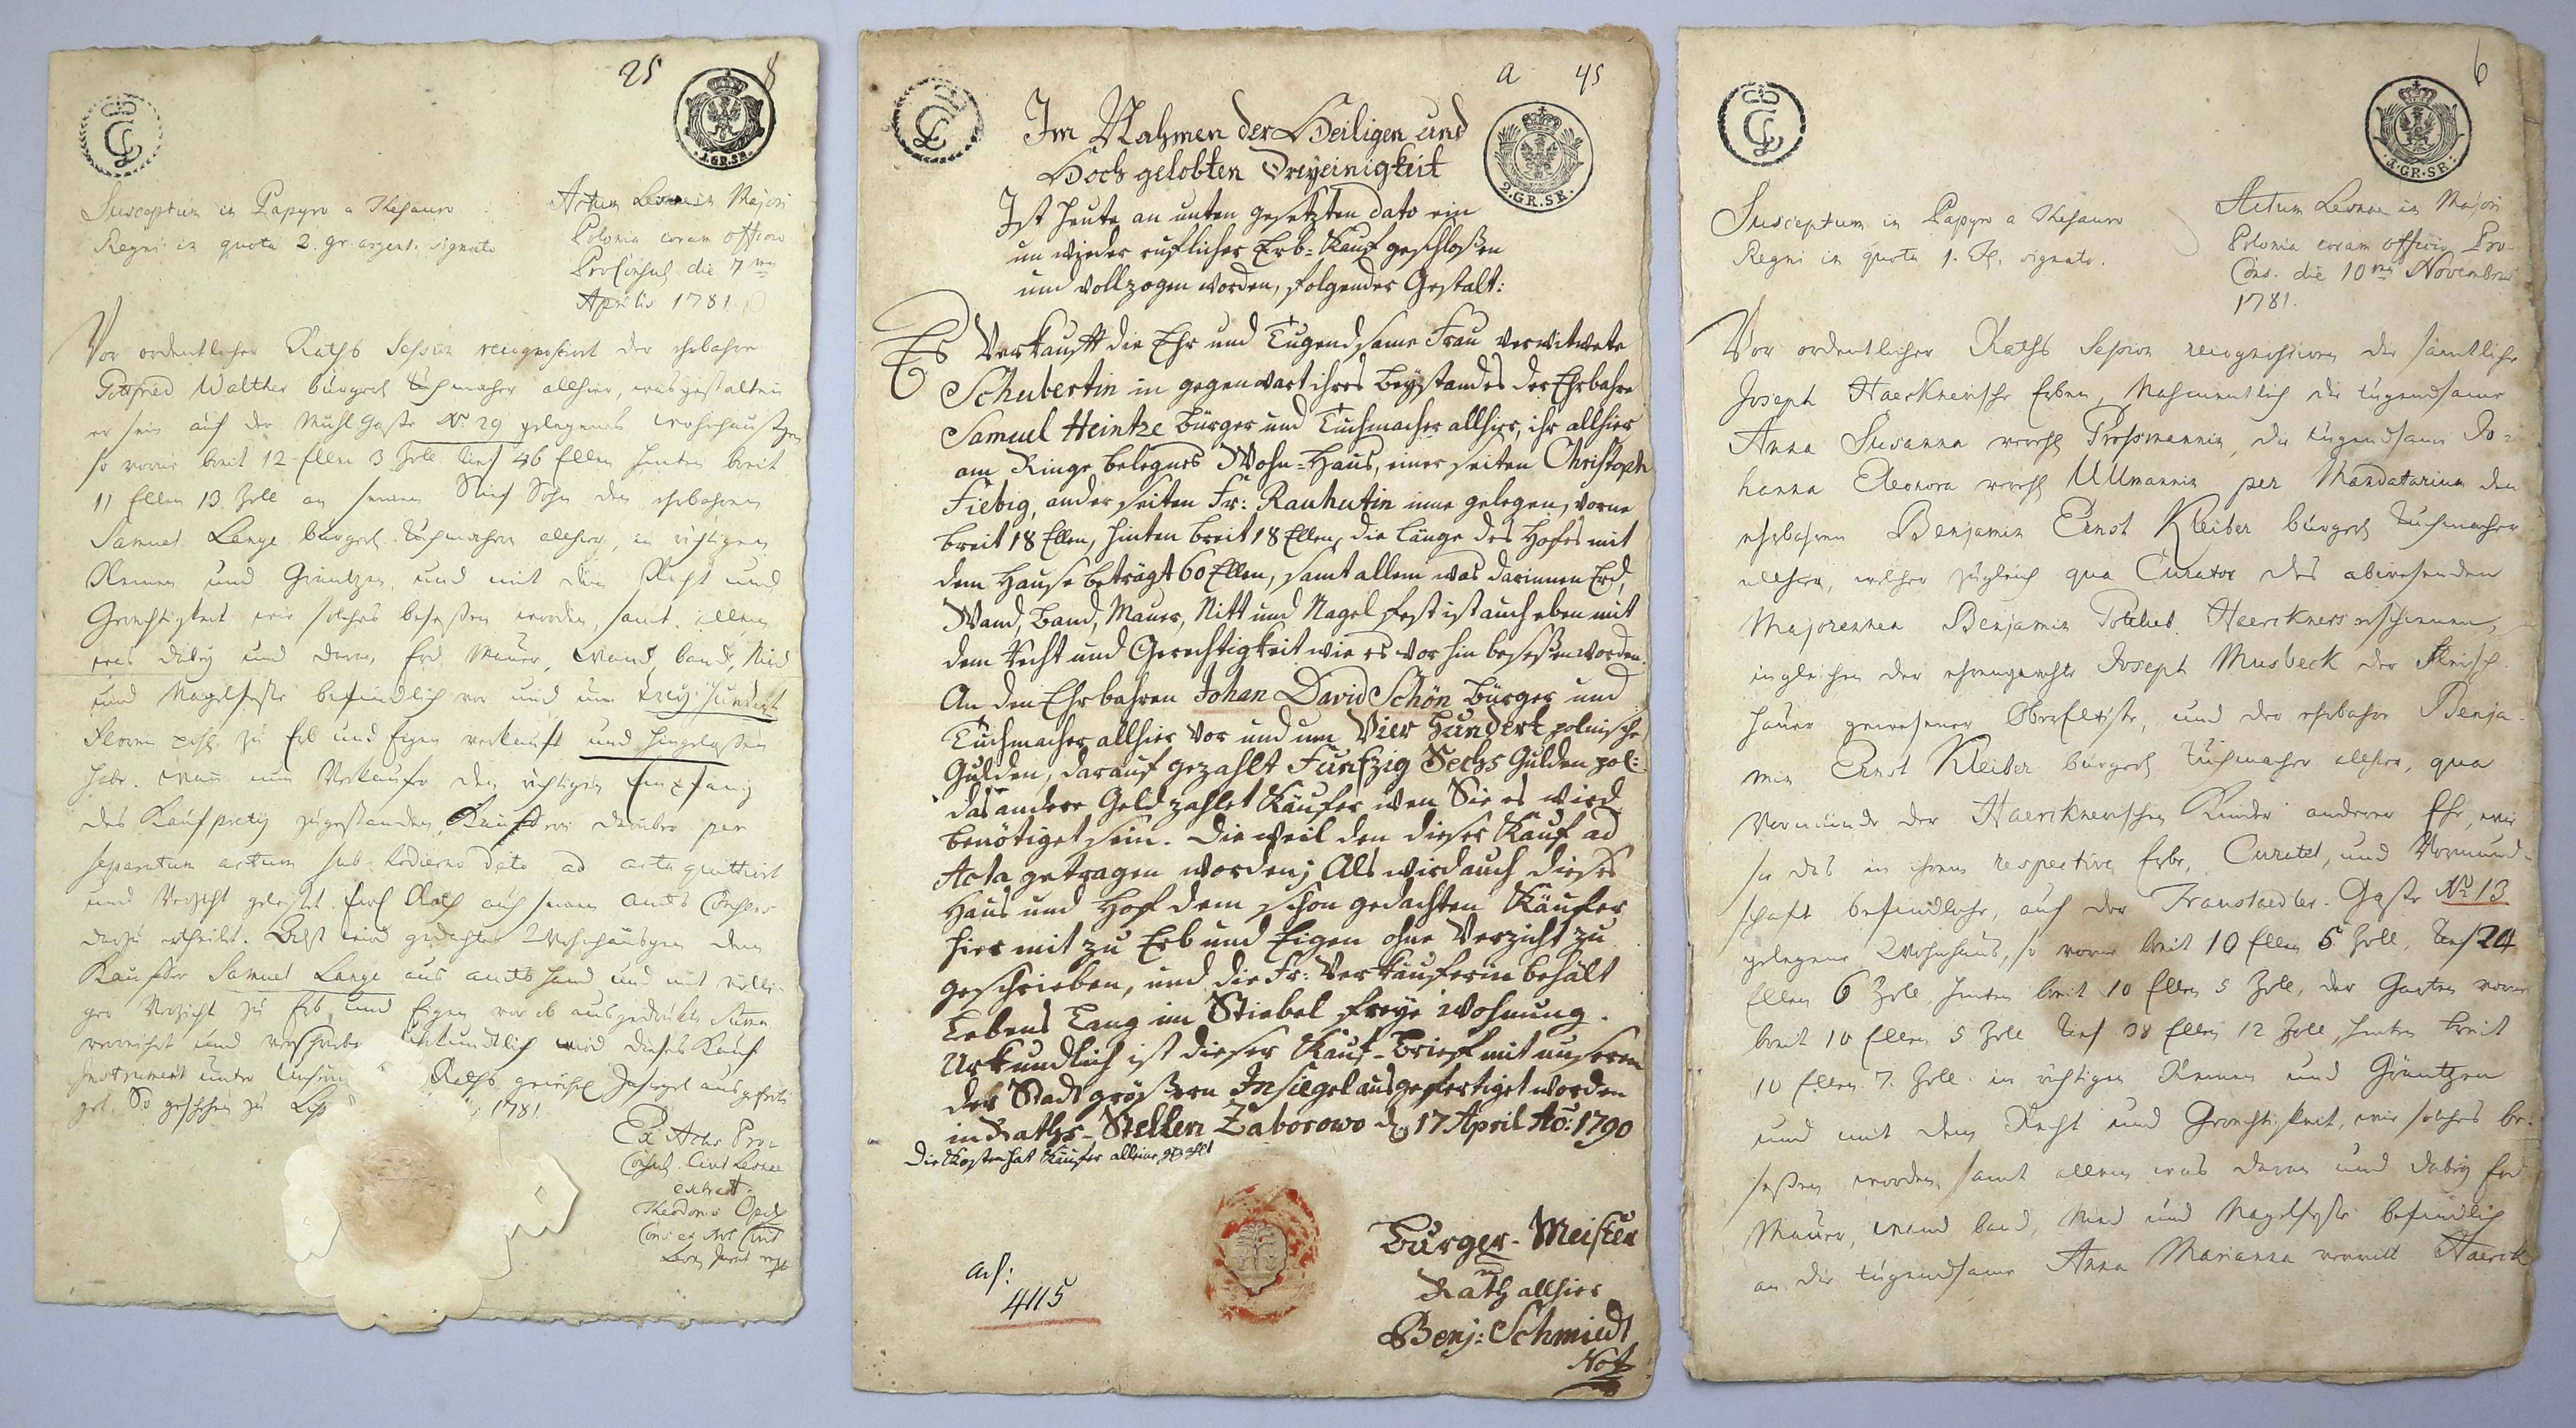 25
8
1.GR.SR.
Susceptum in Papyro a Thesauro
Regni in quota 2. gr. argent. signato
Actum Lesnae in Majori
Polonia coram officio
Proconsul. die 7ma
Aprilis 1781
Vor ordentlicher Raths Session recognosciret der ehrbahre
Gottfried Walther bürgerl. Tuchmacher allhier, was gestalten
er sein auf der Mühl Gaße No. 29 gelegenes Wohnhäußgen
so vorne breit 12 Ellen 3 Zoll tief 46 Ellen hinten breit
11 Ellen 13 Zoll an seinen Stief Sohn den ehrbahren
Samuel Lange bürgerl. Tuchmacher allhier, in richtigen
Reinen und Gräntzen, und mit dem Recht und
Gerechtigkeit wie solches beseßen worden, samt allem
was dabey und daran, Erd, Mauer, Wand, band, Nied
und Nagelfeste befindlich vor und um drey Hundert
Floren pohl. zu Erb und Eigen verkauft und hingelaßen
habe. Wann nun Verkäufer den richtigen Empfang
des Kaufpretii zugestanden, Käuffern darüber per
separatum actum sub hodierno dato ad acta quittirt
und Verzicht geleistet. Einl Rath auch seinen Amts Consens
darzu ertheilet. Als wird gedachtes Wohnhäusgen dem
Käuffer Samuel Lange aus Amts Hand und mit völli-
ger Verzicht zu Erb und Eigen vor ob ausgedrückte Suma
verreichet und verschrieben Uhrkundlich wird dieses Kauf
Instrument unter Raths Insiegel ausgeferti
get. So geschehen zu 1781
Ex Actis Pro-
Consul. Civit Lesnae
extract.
Theodorus Opitz
Cons et Not Civit
a 45
2.GR.SR.
Im Nahmen der Heiligen und
Hoch gelobten Dreyeinigkeit
Ist heute an unten gesetzten dato ein
un wieder ruflicher Erb-Kauf geschloßen
und vollzogen worden, folgender Gestalt:
Es Verkaufft die Ehr und Tugendsame Frau verwitwete
Schubertin in gegenwart ihres Beystandes der Ehrbahre
Samuel Heintze Bürger und Tuchmacher allhier, ihr allhier
am Ringe belegnes Wohn-Haus, einer seiten Christoph
Fiebig, ander seiten Fr: Rauhutin inne gelegen, vorne
breit 18 Ellen, hinten breit 18 Ellen, die Länge des Hofes mit
dem Hause beträgt 60 Ellen, samt allem was darinnen Erd,
Wand, Band, Mauer, Nitt und Nagel fest ist auch eben mit
dem Recht und Gerechtigkeit wie es vor hin beseßen worden.
An den Ehrbahren Johan David Schön Bürger und
Tuchmacher allhier vor und um Vier Hundert polnische
Gulden, darauf gezahlt Funfzig Sechs Gulden pol:
das andere Geld zahlet Käufer wen Sie es wird
benötiget sein. Die weil den dieser Kauf ad
Acta getragen worden; Als wird auch dieses
Haus und Hof dem schon gedachten Käufer
hier mit zu Erb und Eigen ohne Verzicht zu
geschrieben, und die Fr: Verkäuferin behält
Lebens Lang im Stiebel freye Wohnung.
Urkundlich ist dieser Kauf-Brief mit unserem
der Stadt größern Insiegel ausgefertiget worden
in Raths-Stellen Zaborowo d. 17 April Ao: 1790
Die Kosten hat Käufer alleine gezahlt
Burger-Meister
u
Rath allhier
Benj: Schmiedt
Not
4115
6
1.GR.SR.
Susceptum in Papyro a Thesauro
Regni in quota 1. fl. signato.
Actum Lesnae in Majori
Polonia coram officio Pro-
Cons. die 10ma Novembris
1781.
Vor ordentlicher Raths Session recognosciren die sämtliche
Joseph Haercknerische Erben, Nahmentlich die tugendsame
Anna Susanna verehl Prossmannin, die tugendsame Jo-
hanna Eleonora verehl Ullmannin per Mandatarium den
ehrbahren Benjamin Ernst Kleiber bürgerl Tuchmacher
allhier, welcher zugleich qua Curator des abwesenden
Majorennen Benjamin Gottlieb Haerckners erschienen,
ingleichen der ehrengeachte Joseph Musbeck der Fleisch-
hauer gewesener Oberältste, und der ehrbahre Benja-
min Ernst Kleiber bürgerl Tuchmacher allhier, qua
Vormünde der Haercknerischen Kinder anderer Ehe, wie
sie das in ihrer respective Erbe, Curatel, und Vormund-
schaft befindliche, auf der Fraustaedter-Gaße No 13
gelegene Wohnhaus, so vorne breit 10 Ellen 5 Zoll, tief 24
Ellen 6 Zoll, hinten breit 10 Ellen 5 Zoll, der Garten vorne
breit 10 Ellen 5 Zoll tief 38 Ellen 12 Zoll, hinten breit
10 Ellen 7. Zoll in richtigen Reinen und Gräntzen
und mit dem Recht und Gerechtigkeit, wie solches be-
seßen worden, samt allem was daran und dabey Erd
Mauer, Wand band, Nied und Nagelfeste befindlich
an die tugendsame Anna Marianna verwitt Haerck